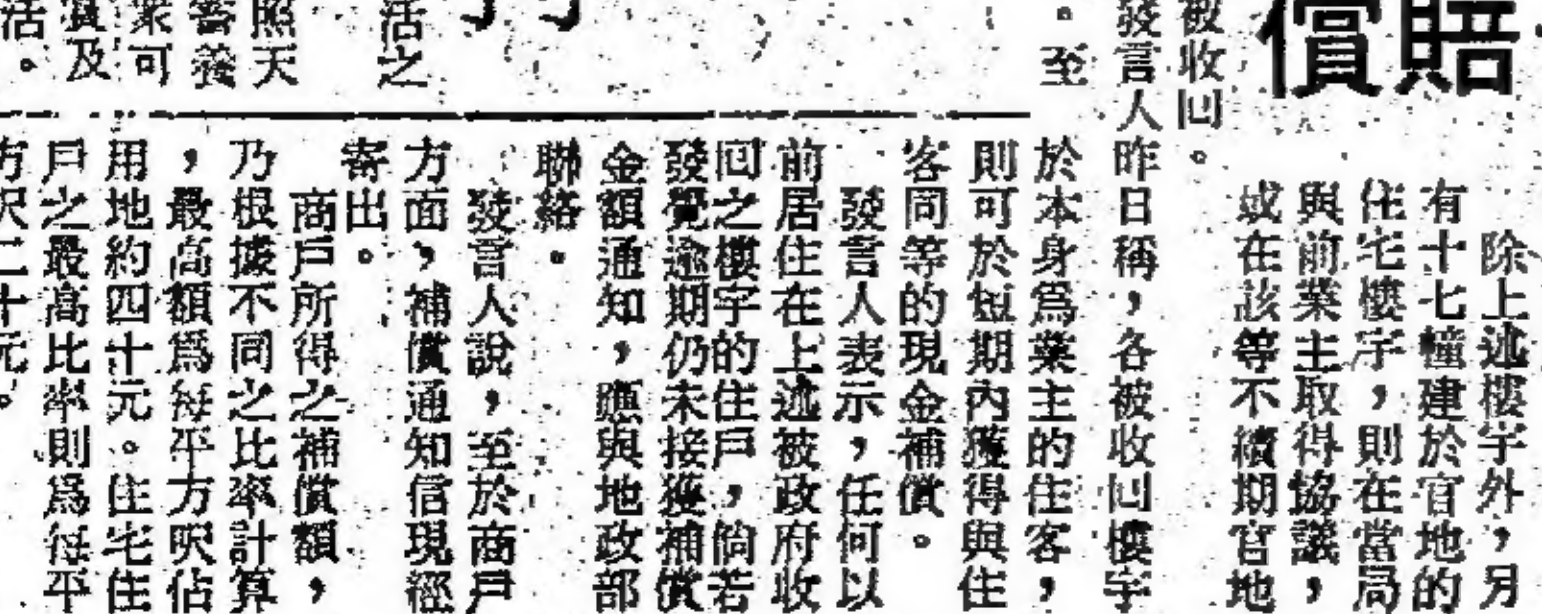 賠償
除上述樓宇外，另
有十七幢建於官地的
住宅樓宇，則在當局
與前業主取得協議，
或在該等不續期官地
被收回。
發言人昨日稱，各被收回樓宇
。至於本身爲業主的住客，
則可於短期內獲得與住
客同等的現金補償。
發言人表示，任何以
前居住在上述被政府收
回之樓宇的住戶，倘若
發覺逾期仍未接獲補償
金額通知，應與地政部
聯絡。
發言人說，至於商戶
方面，補償通知信現經
寄出。
商戶所得之補償額，
乃根據不同之比率計算
，最高額爲每平方呎佔
用地約四十元。住宅住
戶之最高比率則爲每平
方呎二十元。
活之
照天
善養
衆可
及
活。